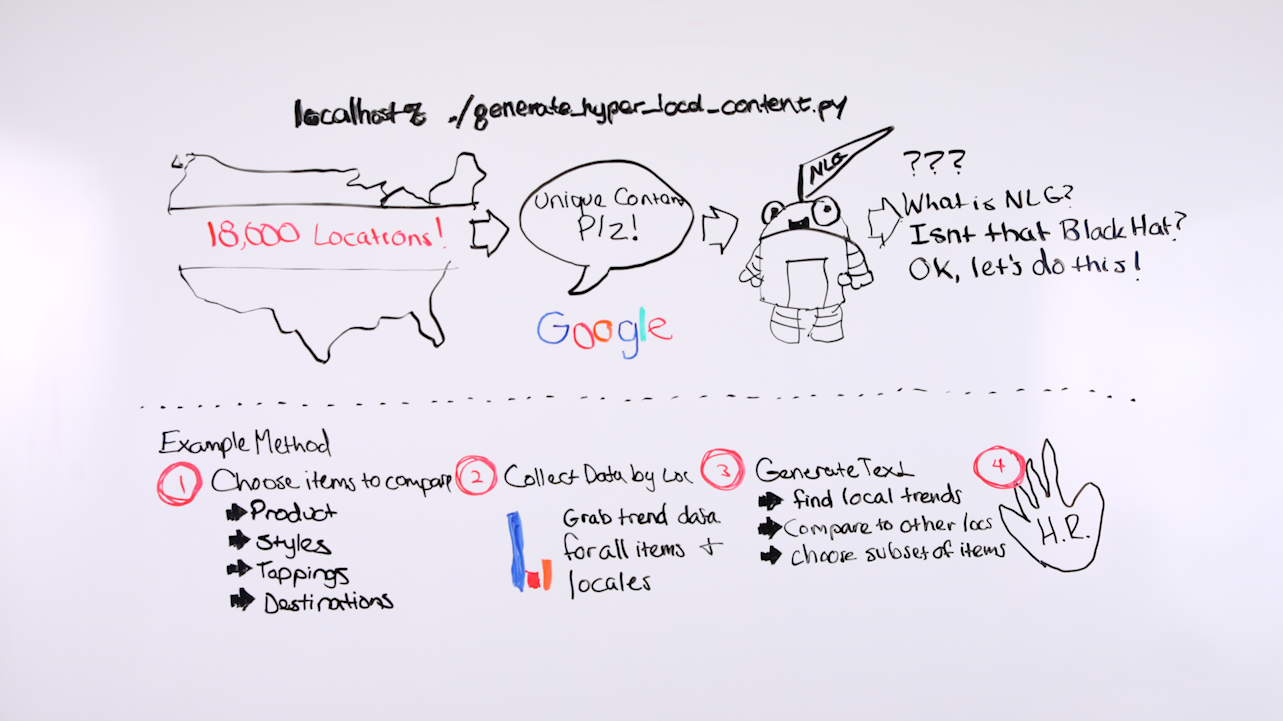 localhost% ./generate_hyper_local_content.py
18,000 Locations!
Unique Content
Plz!
Google
NLG
???
What is NLG?
Isnt that Black Hat?
OK, let's do this!
Example Method
1 Choose items to compare
Product
Styles
Toppings
Destinations
2 Collect Data by Loc
Grab trend data
for all items +
locales
3 Generate Text
find local trends
Compare to other locs
choose subset of items
4
H.R.